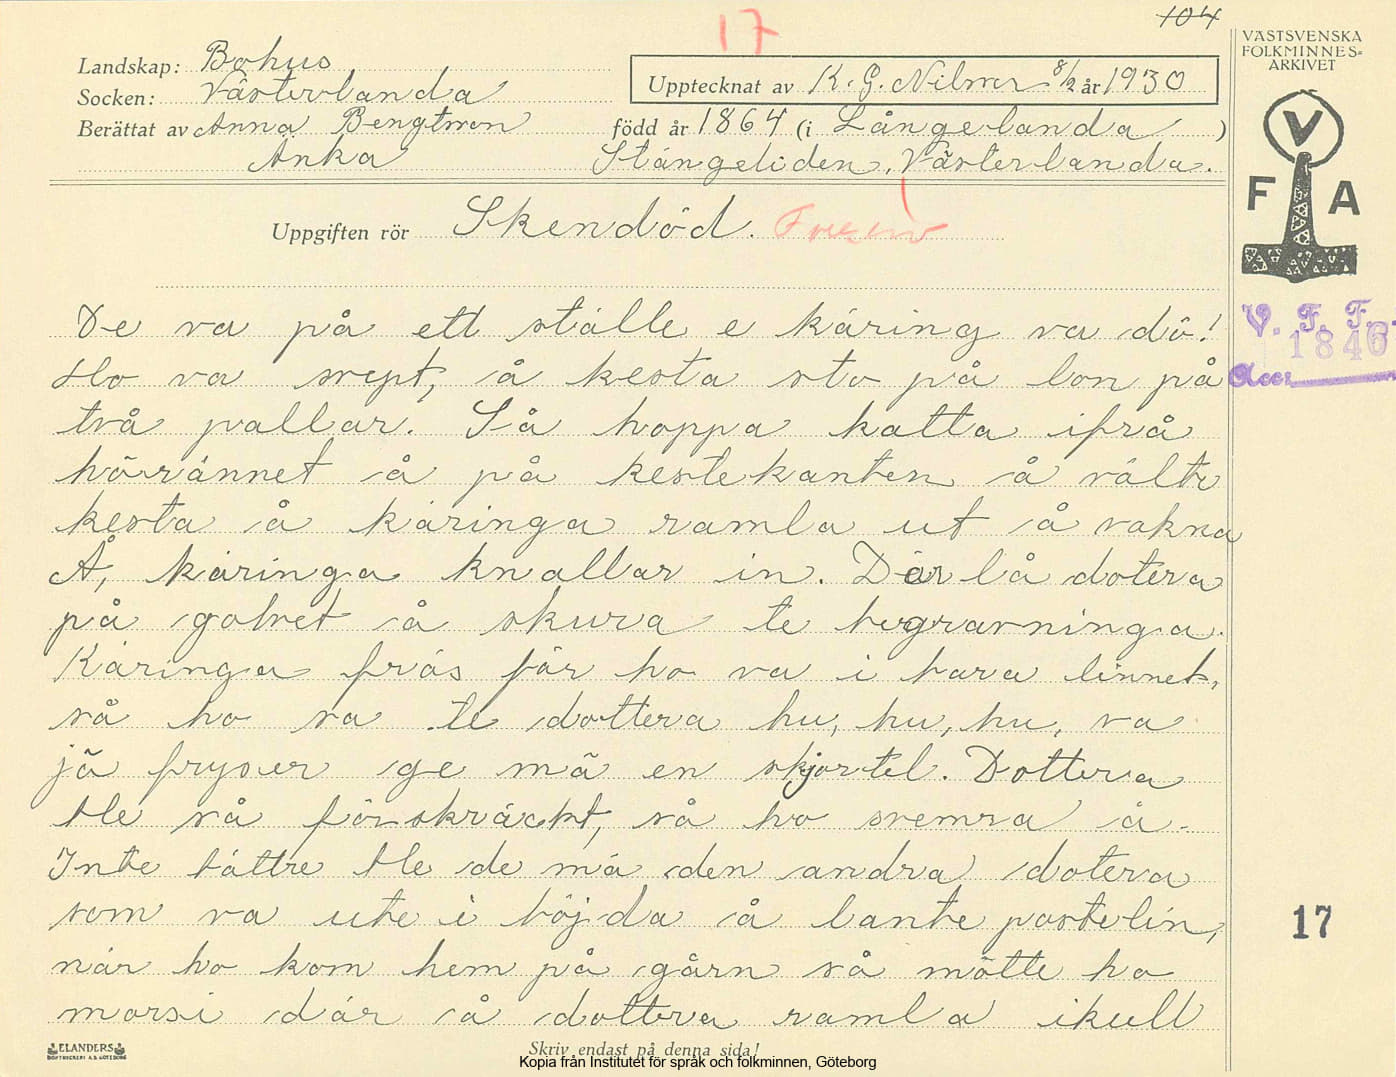 104
17
Landskap: Bohus
Socken: Västerlanda
Berättat av Anna Bengtsson
Anka
Upptecknat av K. G. Nilsson 8/2 år 1930
född år 1864 (i Långelanda)
Stångeliden, Västerlanda.
Uppgiften rör Skendöd.
VÄSTSVENSKA
FOLKMINNES=
ARKIVET
V
F A
V. F. F.
1846
Acc:
De va på ett ställe e käring va dö!
Ho va svept, å kesta sto på lon på
två pallar. Så hoppa katta ifrå
hörännet å på kestekanten å välte
kesta å käringa ramla ut å vakna
Å, käringa knallar in. Där lå dotera
på golvet å skura te begravninga.
Käringa frös för ho va i bara linnet,
så ho sa te dottera hu, hu, hu, va
jä fryser ge mä en skjortel. Dottera
ble så förskräckt, så ho svemra å.
Inte bättre ble de mä den andra dotera
som va ute i böjda å lante postelin,
när ho kom hem på gårn så mötte ho
morsi där å dottera ramla ikull
17
ELANDERS
BOKTRYCKERI A.B. GÖTEBORG
Skriv endast på denna sida!
Kopia från Institutet för språk och folkminnen, Göteborg